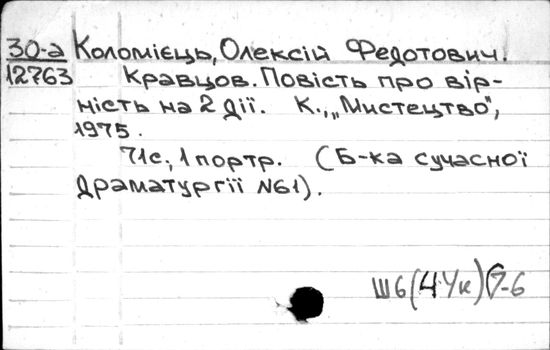 30-а Коломієць, Олексій Федотович.
12763 Кравцов. Повість про вір-
ність на 2 дії. К., „Мистецтво",
1975.
71с; 1 портр. (Б-ка сучасної
драматургії №61).
Ш6(4Ук)